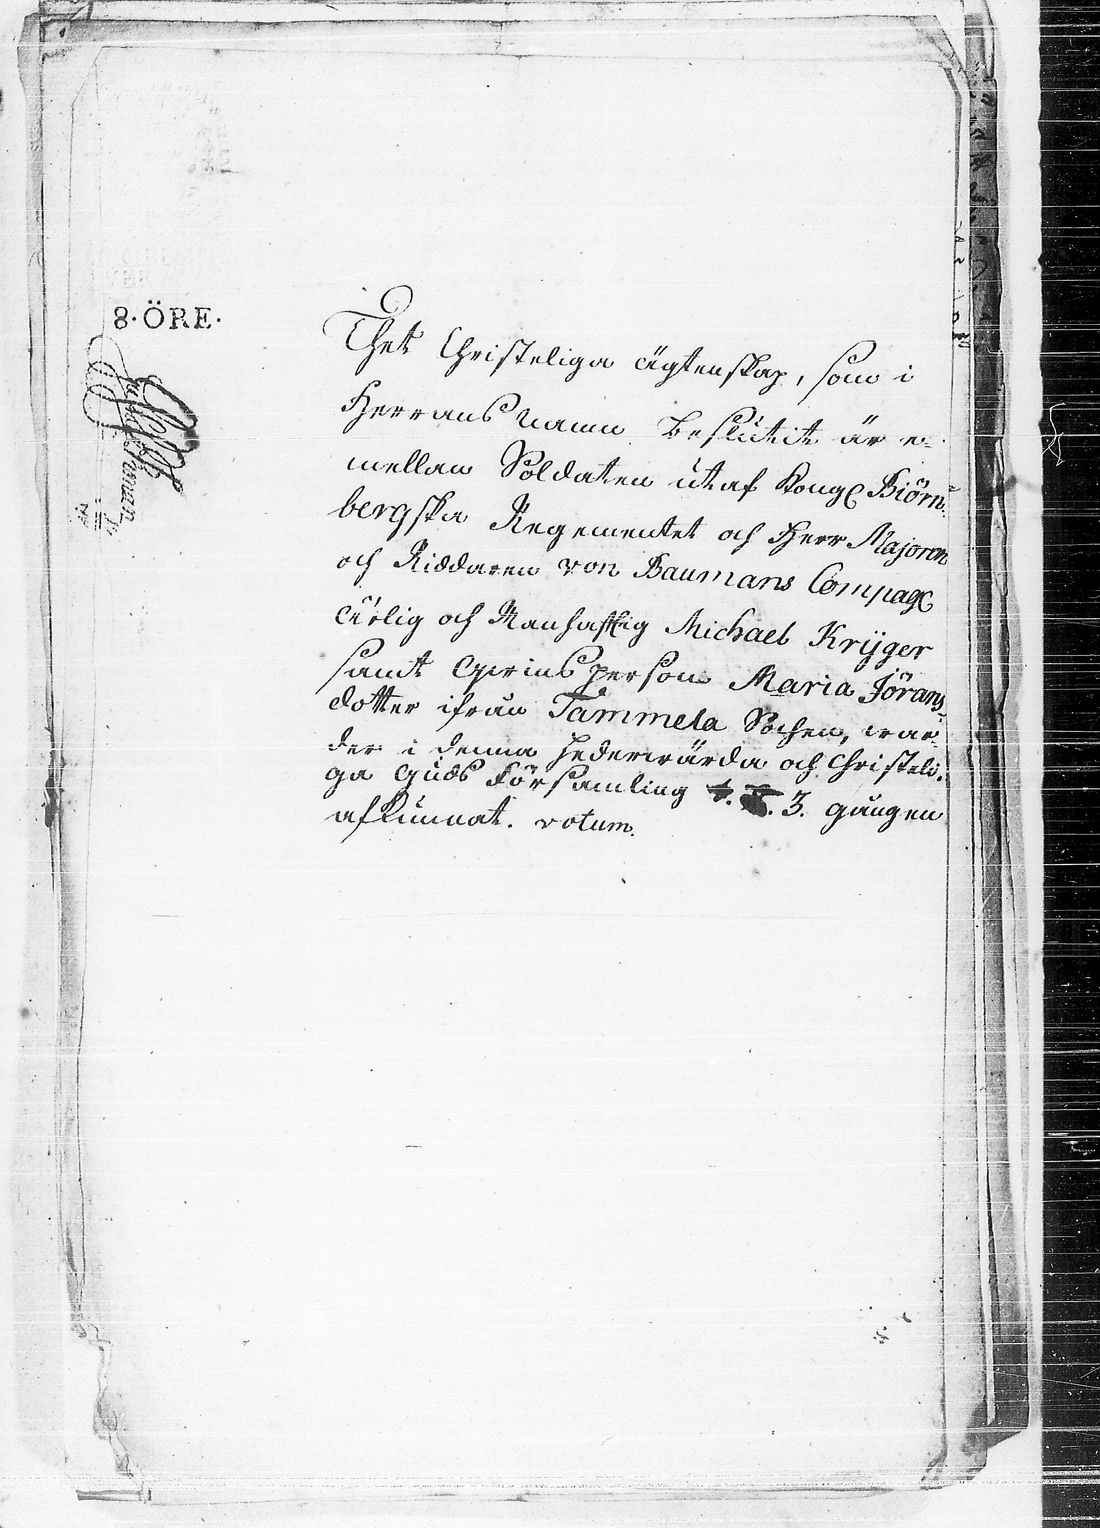 8·ÖRE·
Thet Christeliga ägtenskap, som i
Herrans Namn beslutit är e-
mellan Soldaten utaf Kongl Biörne-
bergska Regementet och Herr Majoren
och Riddaren von Baumans Compagn
ärlig och Manhaftig Michael Krijger
samt Qwins person Maria Jörans-
dotter ifrån Tammela Sochen, war-
der i denna hederwärda och Christeli-
ga Guds Församling 3. gången
afkunnat. votum.